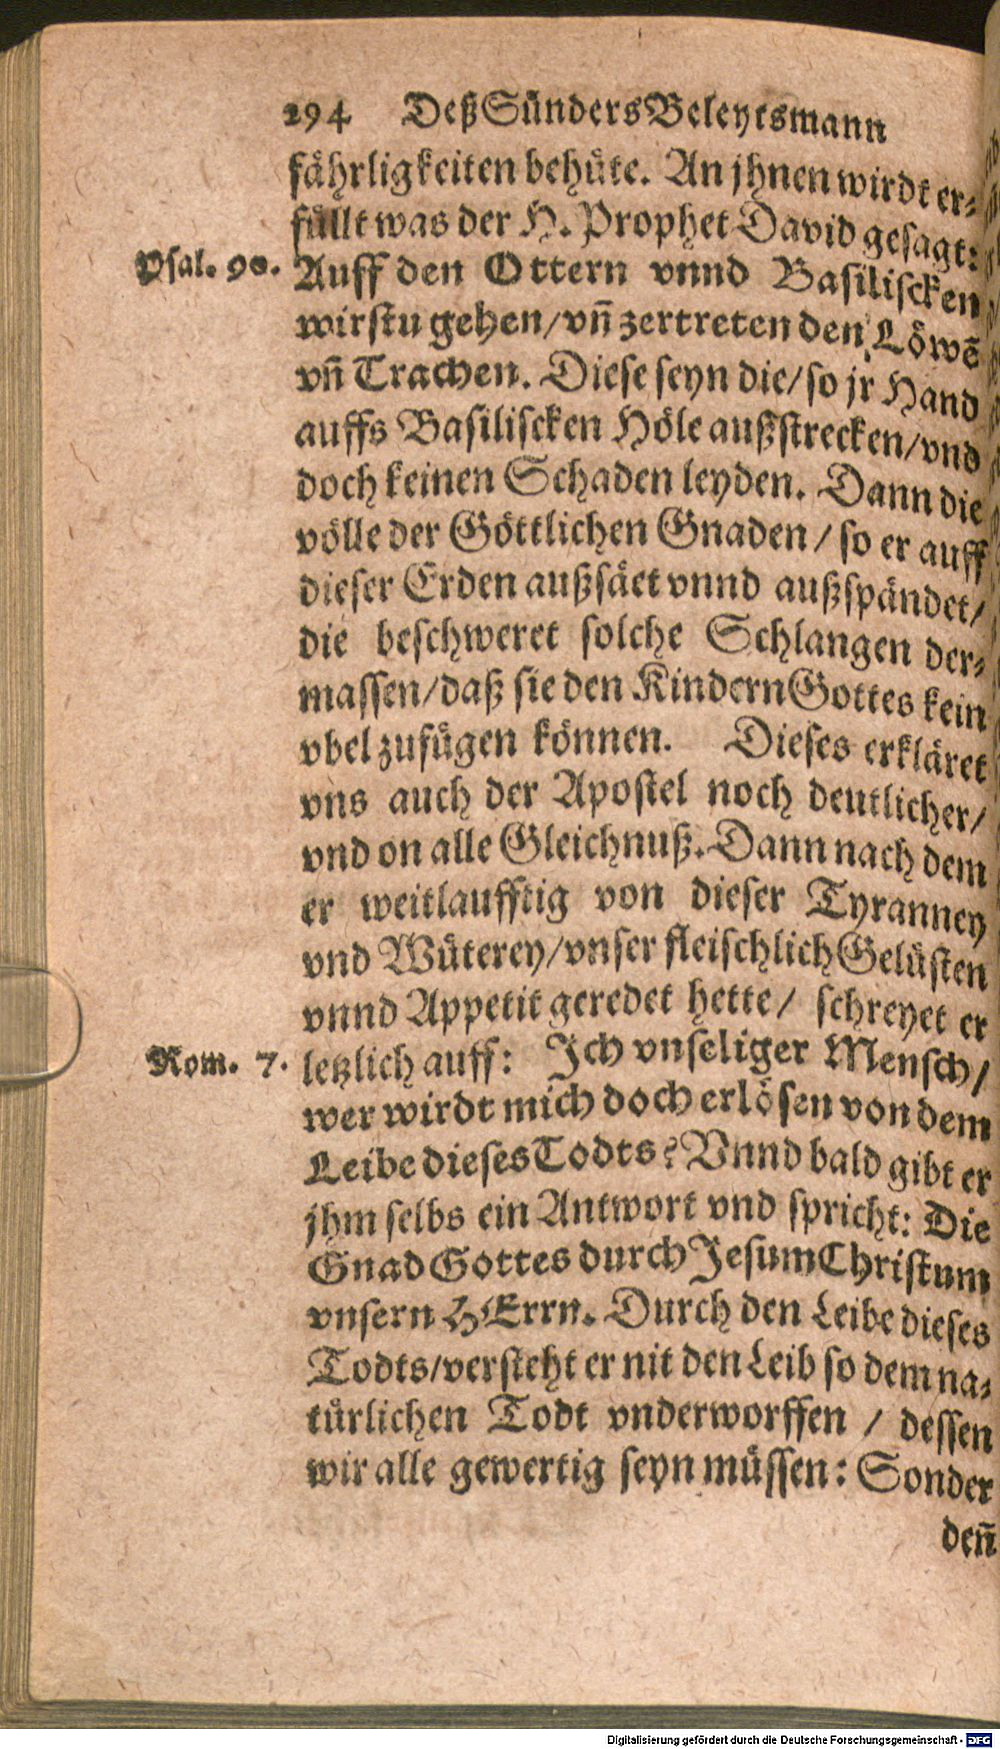 294 Deß Sünders Beleytsmann
fährligkeiten behüte. An jhnen wirdt er-
füllt was der H. Prophet David gesagt:
Psal. 90. Auff den Ottern vnnd Basiliscken
wirstu gehen/vñ zertreten den Löwẽ
vñ Trachen. Diese seyn die/so jr Hand
auffs Basiliscken Höle außstrecken/vnd
doch keinen Schaden leyden. Dann die
völle der Göttlichen Gnaden/so er auff
dieser Erden außsäet vnnd außspändet/
die beschweret solche Schlangen der-
massen/daß sie den Kindern Gottes kein
vbel zufügen können. Dieses erkläret
vns auch der Apostel noch deutlicher/
vnd on alle Gleichnuß. Dann nach dem
er weitlaufftig von dieser Tyranney
vnd Wüterey/vnser fleischlich Gelüsten
vnnd Appetit geredet hette/ schreyet er
Rom. 7. letzlich auff: Ich vnseliger Mensch/
wer wirdt mich doch erlösen von dem
Leibe dieses Todts? Vnnd bald gibt er
jhm selbs ein Antwort vnd spricht: Die
Gnad Gottes durch Jesum Christum
vnsern HErrn. Durch den Leibe dieses
Todts/versteht er nit den Leib so dem na-
türlichen Todt vnderworffen / dessen
wir alle gewertig seyn müssen: Sonder
deñ
Digitalisierung gefördert durch die Deutsche Forschungsgemeinschaft - DFG